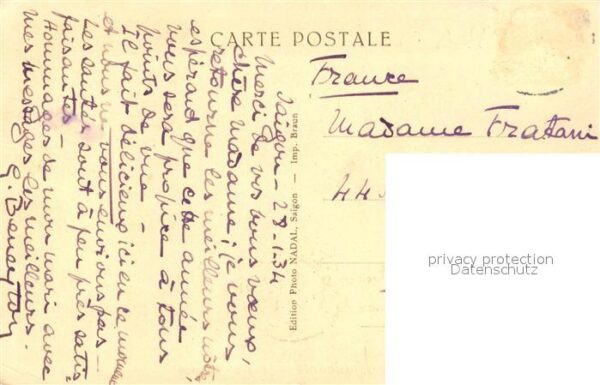 CARTE POSTALE
France
Madame Frattani
44
Edition Photo NADAL, Saigon — Imp. Braun
Saigon - 28-1-34
Merci de vos bons vœux,
chère Madame ; je vous
retourne les meilleurs nôtres
espérant que cette année
vous sera propice à tous
points de vue -
Il fait délicieux ici en ce moment
et nous ne vous envions pas -
Les santés sont à peu près satis
faisantes -
Hommages de mon mari avec
mes messages les meilleurs.
privacy protection
Datenschutz